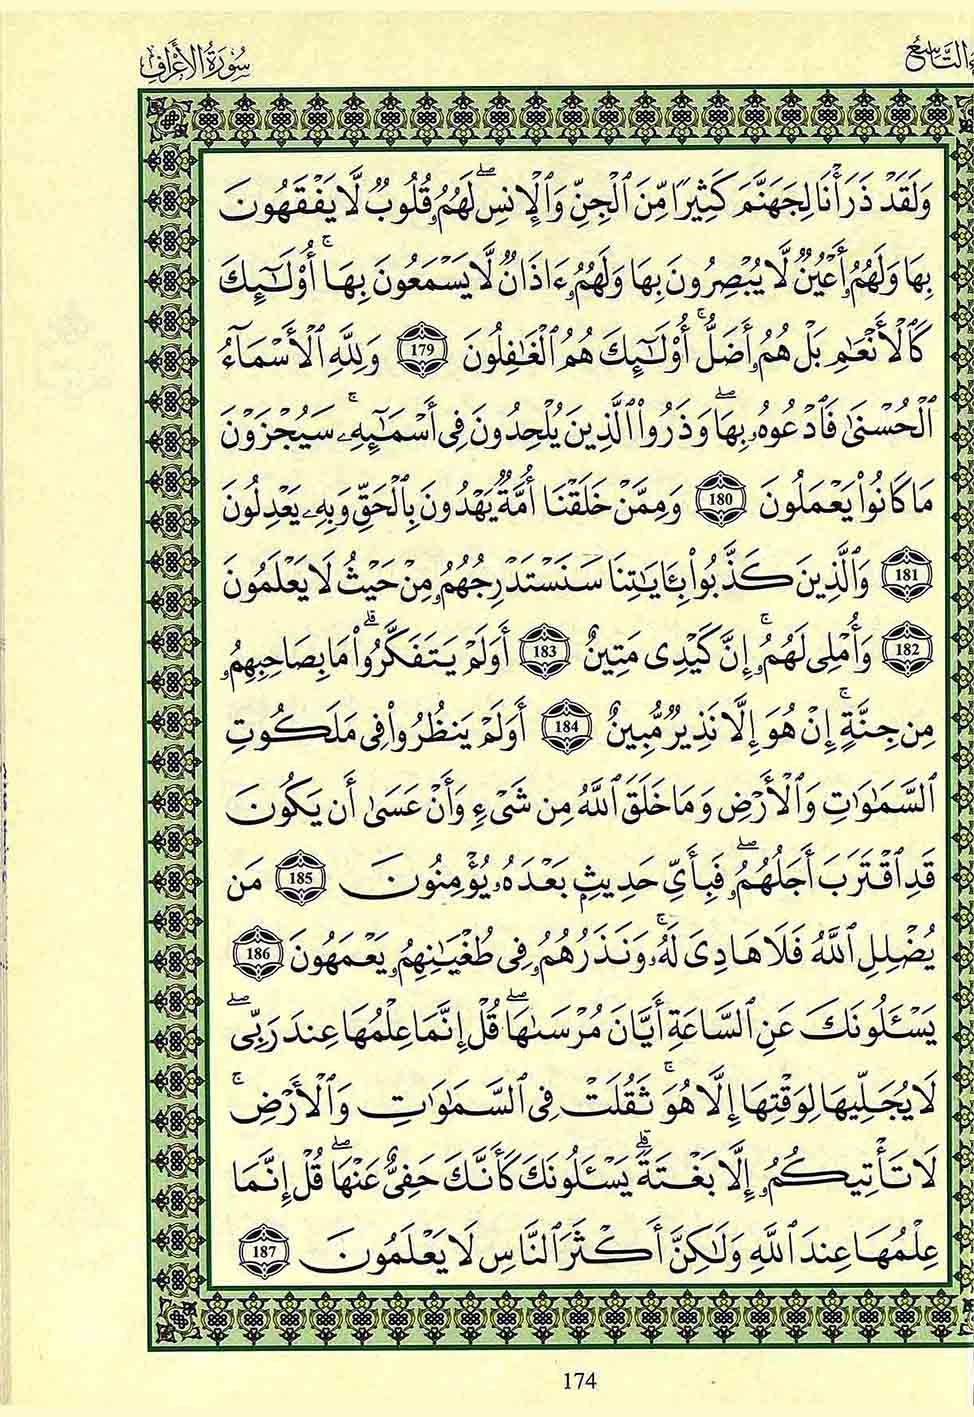 ءُ التَّاسِعُ سُورَةُ الأَعْرَافِ
وَلَقَدْ ذَرَأْنَا لِجَهَنَّمَ كَثِيرًا مِّنَ ٱلْجِنِّ وَٱلْإِنسِ ۖ لَهُمُۥ قُلُوبٌ لَّا يَفْقَهُونَ
بِهَا وَلَهُمُۥ أَعْيُنٌ لَّا يُبْصِرُونَ بِهَا وَلَهُمُۥ ءَاذَانٌ لَّا يَسْمَعُونَ بِهَا ۚ أُوْلَٰٓئِكَ
كَٱلْأَنْعَٰمِ بَلْ هُمُۥ أَضَلُّ ۚ أُوْلَٰٓئِكَ هُمُ ٱلْغَٰفِلُونَ 179 وَلِلَّهِ ٱلْأَسْمَآءُ
ٱلْحُسْنَىٰ فَٱدْعُوهُۥ بِهَا ۖ وَذَرُواْ ٱلَّذِينَ يُلْحِدُونَ فِى أَسْمَٰٓئِهِۦ ۚ سَيُجْزَوْنَ
مَا كَانُواْ يَعْمَلُونَ 180 وَمِمَّنْ خَلَقْنَا أُمَّةٌ يَهْدُونَ بِٱلْحَقِّ وَبِهِۦ يَعْدِلُونَ
181 وَٱلَّذِينَ كَذَّبُواْ بِـَٔايَٰتِنَا سَنَسْتَدْرِجُهُمُۥ مِنْ حَيْثُ لَا يَعْلَمُونَ
182 وَأُمْلِى لَهُمُۥ ۚ إِنَّ كَيْدِى مَتِينٌ 183 أَوَلَمْ يَتَفَكَّرُواْ ۗ مَا بِصَاحِبِهِمُۥ
مِن جِنَّةٍ ۚ إِنْ هُوَ إِلَّا نَذِيرٌ مُّبِينٌ 184 أَوَلَمْ يَنظُرُواْ فِى مَلَكُوتِ
ٱلسَّمَٰوَٰتِ وَٱلْأَرْضِ وَمَا خَلَقَ ٱللَّهُ مِن شَىْءٍ وَأَنْ عَسَىٰ أَن يَكُونَ
قَدِ ٱقْتَرَبَ أَجَلُهُمُۥ ۖ فَبِأَىِّ حَدِيثٍ بَعْدَهُۥ يُؤْمِنُونَ 185 مَن
يُضْلِلِ ٱللَّهُ فَلَا هَادِىَ لَهُۥ ۚ وَنَذَرُهُمُۥ فِى طُغْيَٰنِهِمُۥ يَعْمَهُونَ 186
يَسْـَٔلُونَكَ عَنِ ٱلسَّاعَةِ أَيَّانَ مُرْسَىٰهَا ۖ قُلْ إِنَّمَا عِلْمُهَا عِندَ رَبِّى ۖ
لَا يُجَلِّيهَا لِوَقْتِهَا إِلَّا هُوَ ۚ ثَقُلَتْ فِى ٱلسَّمَٰوَٰتِ وَٱلْأَرْضِ ۚ
لَا تَأْتِيكُمُۥ إِلَّا بَغْتَةً ۗ يَسْـَٔلُونَكَ كَأَنَّكَ حَفِىٌّ عَنْهَا ۖ قُلْ إِنَّمَا
عِلْمُهَا عِندَ ٱللَّهِ وَلَٰكِنَّ أَكْثَرَ ٱلنَّاسِ لَا يَعْلَمُونَ 187
174